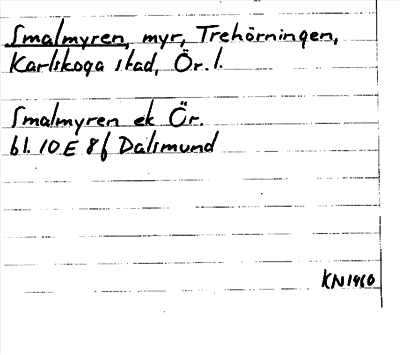 Smalmyren, myr, Trehörningen,
Karlskoga stad, Ör. l.
Smalmyren ek Ör.
bl. 10E 8f Dalsmund
KN1960